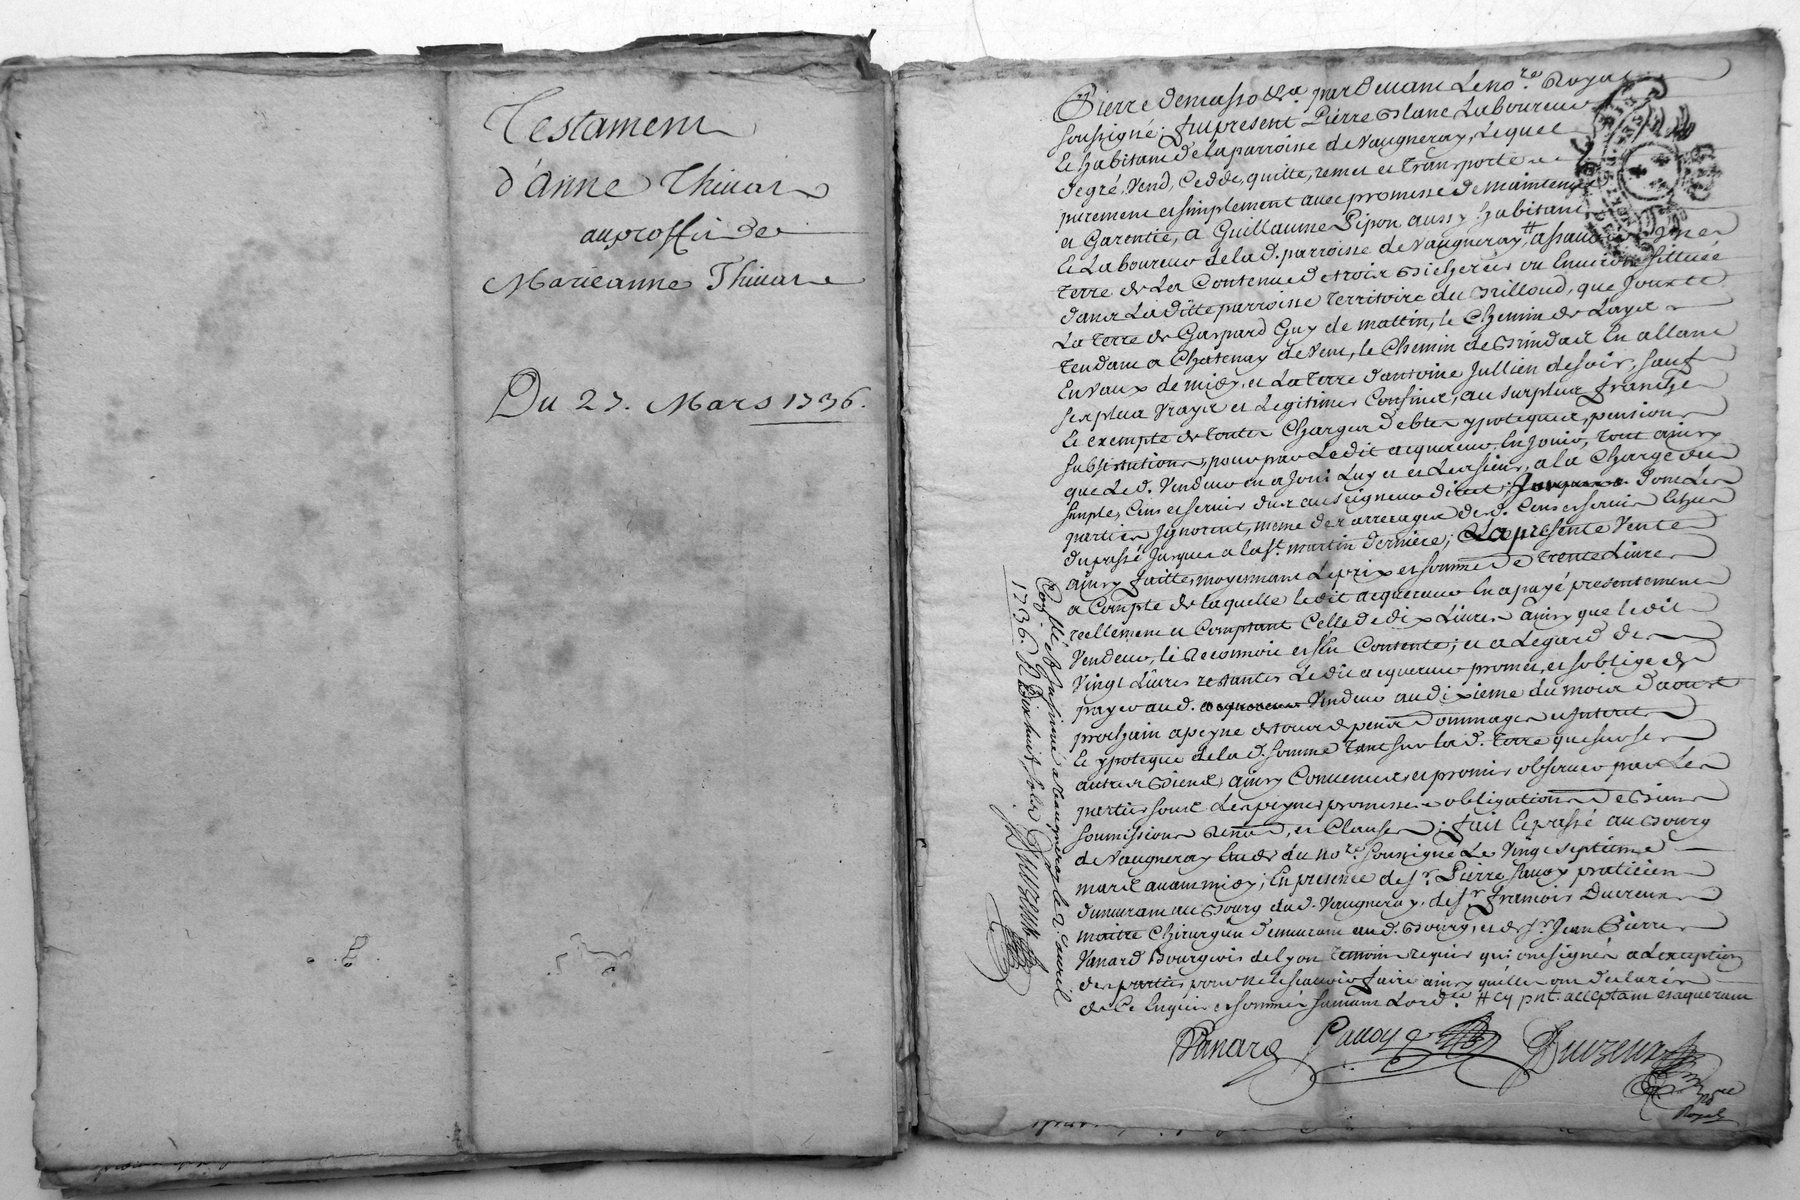 Testament
d'Anne Thivar
au proffit de
Marieanne Thivar
Du 27. Mars 1736.
par devant Le no.re Royal
soussigné; fut present Pierre Blanc Laboureur
et habitant de la parroisse de Vaugneray, Lequel
de gré, Vend, Cedde, quitte, remet et transporte
purement et simplement avec promesse de maintenir
et Garentie, a Guillaume Pipon aussy habitant
et Laboureur de la d. parroisse de Vaugneray, # assavoir Une
terre de La Contenue de trois Bicherées ou Environ sittuée
dans La ditte parroisse territoire du Brilloud, que Jouxte
La terre de Gaspard Guy de mattin, le Chemin de Laya
tendant a Chatenay de Vent, le Chemin de Brindait En allant
En Vaux de midy, et La terre d'antoine Jullien de soir, sauf
ses plus Vrays et Legitimes Confins, au surplus franche
et exempte de toutes Charges debtes ypoteques, pensions
substitutions, pour par Le dit acquereur En Jouir, tout ainsy
que Le d. Vendeur en a Joui Luy et Les siens, a la Charge du
simple, Cens et servis dux au seigneur direct, dont Les
parties Ignorent, meme des arrerages des d. Cens et servis Echus
du passé Jusques a la st. martin derniere; La presente Vente
ainsy faitte moyennant Le prix et somme de trente Livres
a Compte de laquelle le dit acquereur En a payé presentement
reellement et Comptant Celle de dix Livres ainsy que le dit
Vendeur, le Reconnoit et s'en Contente; et a Legard des
Vingt Livres restantes Le dit acquereur promet, et s'oblige de
payer au d. Vendeur au dixieme du mois d'aoust
prochain a peyne de tous depens dommages et Interets
et ypoteque de la d. somme tant sur la d. terre que sur ses
autres Biens, ainsy Convenu et promis observer par Les
parties sous Les peynes promesses obligations de Biens
soumissions Renōns, et Clauses; fait et passé au Bourg
de Vaugneray Etude du no.re soussigné Le Vingt septieme
mars avant midy; En presence de sr. Pierre Pavoy praticien
demeurant au Bourg du d. Vaugneray, de sr. francois Duvreux
maitre Chirurgien demeurant au d. Bourg, et de sr. Jean Pierre
Vanard Bourgeois de Lyon temoins requis qui ont signé a L'exception
des parties pour ne le sçavoir faire ainsy qu'elles ont declaré
de Ce Enquis et sommés suivant Lord.ce # Cy pnt. acceptant et aquerant
Vanard Pavoy
Royal
Con.llé et Insinué a Vaugneray le 2.e avril
1736. R. Dix huit sols